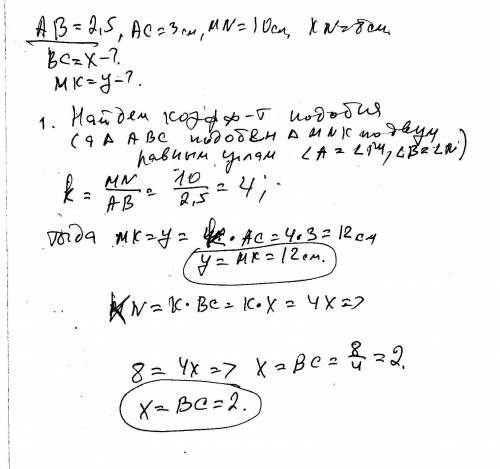 AB = 2,5, AC = 3 см, MN = 10 см, KN = 8 см.
BC = x - ?.
MK = y - ?.
1. Найдем коэфф-т подобия
(ч Δ ABC подобен Δ MNK по двум
равным углам ∠A = ∠M, ∠B = ∠N)
k = MN/AB = 10/2,5 = 4;
тогда MK = y = k · AC = 4·3 = 12 см
y = MK = 12 см.
KN = k · BC = k · x = 4x =>
8 = 4x => x = BC = 8/4 = 2.
x = BC = 2.